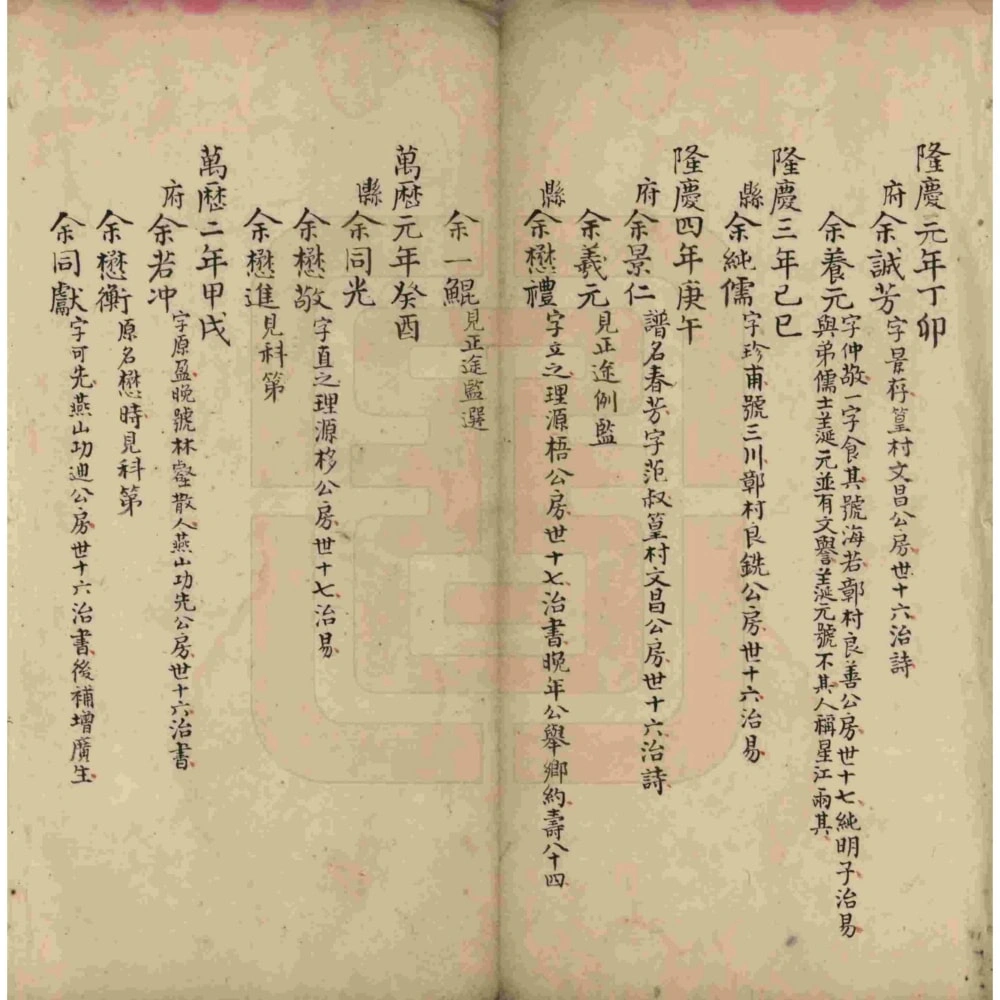 隆慶元年丁卯
府余誠芳字景存篁村文昌公房世十六治詩
余養元字仲敬一字食其號海若鄣村良善公房世十七純明子治易
與弟儒士誕元並有文譽誕元號不其人稱星江兩其
隆慶三年己巳
縣余純儒字珍甫號三川鄣村良銑公房世十六治易
隆慶四年庚午
府余景仁譜名春芳字范叔篁村文昌公房世十六治詩
余羲元見正途例監
縣余懋禮字立之理源梧公房世十七治書晚年公舉鄉約壽八十四
余一鯤見正途監選
萬曆元年癸酉
縣余同光
余懋敬字直之理源栘公房世十七治易
余懋進見科第
萬曆二年甲戌
府余若冲字原盈晚號林壑散人燕山功先公房世十六治書
余懋衡原名懋時見科第
余同獻字可先燕山功迪公房世十六治書後補增廣生